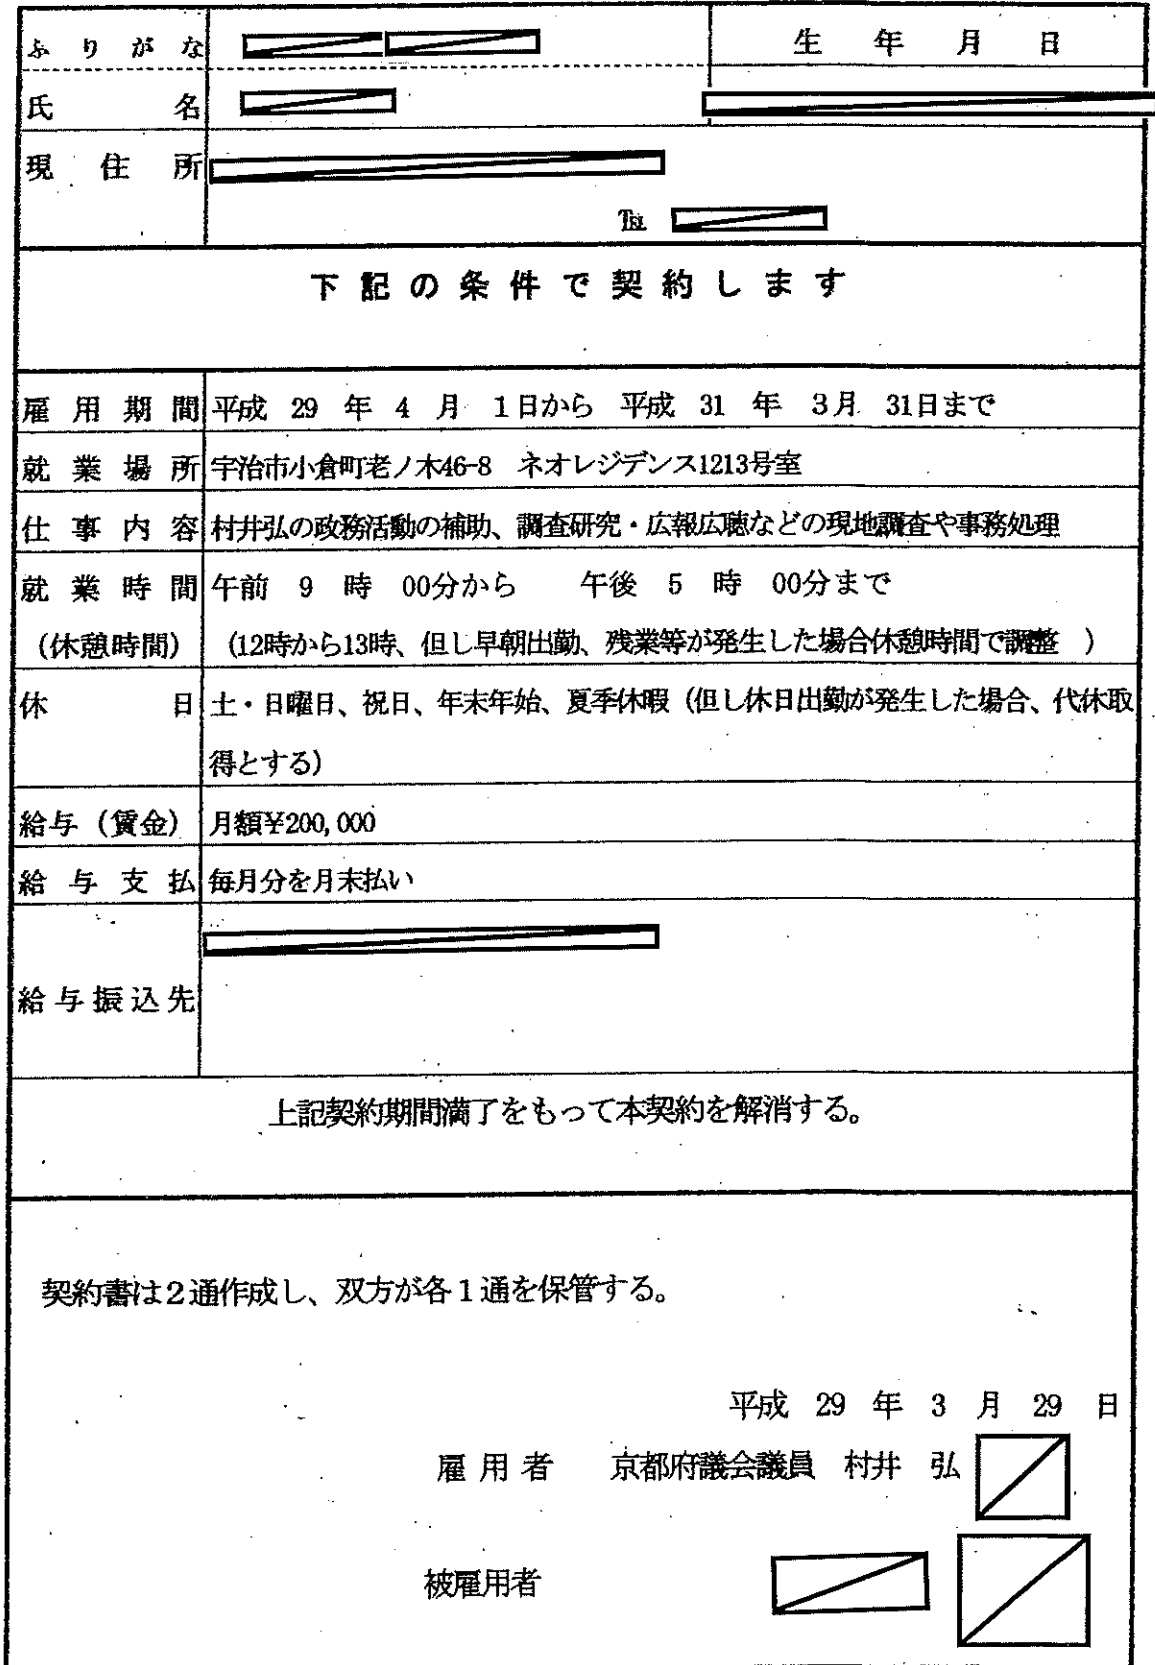 ふりがな 生年月日
氏名
現住所
℡
下記の条件で契約します
雇用期間 平成 29 年 4 月 1日から 平成 31 年 3月 31日まで
就業場所 宇治市小倉町老ノ木46-8 ネオレジデンス1213号室
仕事内容 村井弘の政務活動の補助、調査研究・広報広聴などの現地調査や事務処理
就業時間 午前 9 時 00分から 午後 5 時 00分まで
(休憩時間) (12時から13時、但し早朝出勤、残業等が発生した場合休憩時間で調整 )
休日 土・日曜日、祝日、年末年始、夏季休暇(但し休日出勤が発生した場合、代休取
得とする)
給与(賃金) 月額¥200,000
給与支払 毎月分を月末払い
給与振込先
上記契約期間満了をもって本契約を解消する。
契約書は2通作成し、双方が各1通を保管する。
平成 29 年 3 月 29 日
雇用者 京都府議会議員 村井 弘
被雇用者